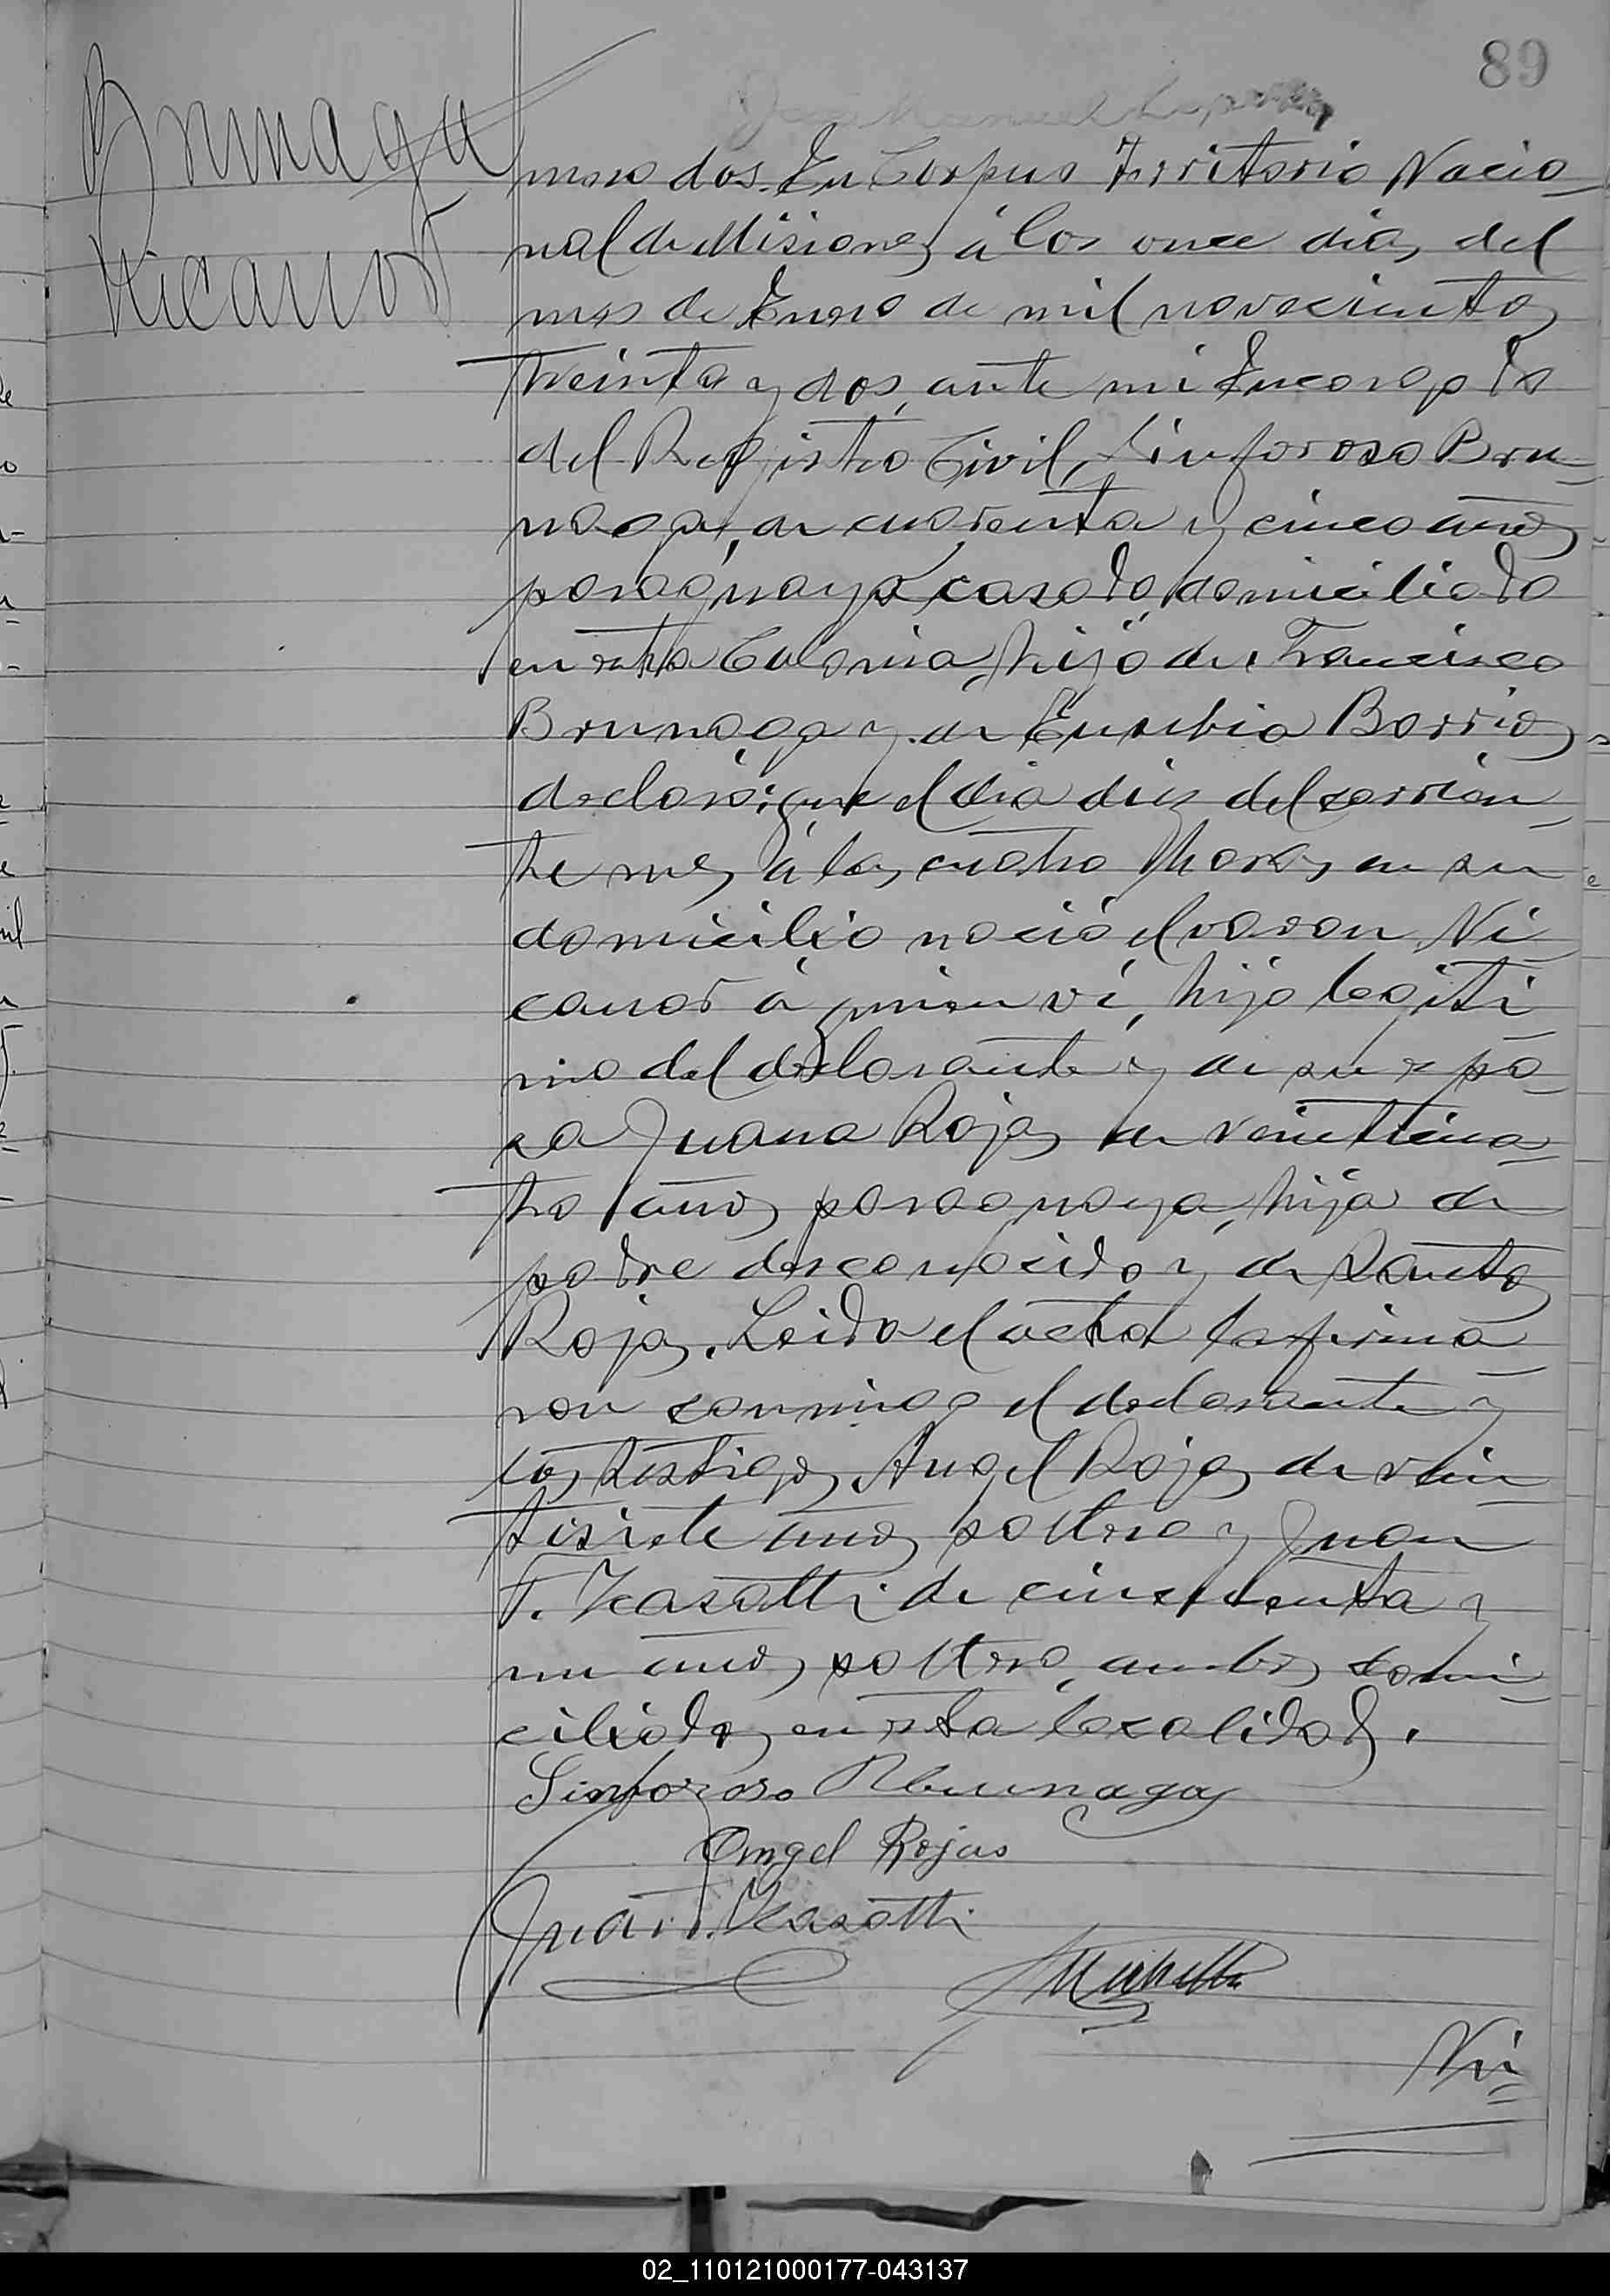 89
Brunaga
Nicanor
mero dos. En Corpus Territorio Nacio-
nal de Misiones á los once dias del
mes de Enero de mil novecientos
treinta y dos, ante mi Encargado
del Registro Civil, Sinforoso Bru-
naga, de cuarenta y cinco años
paraguayo, casado, domiciliado
en esta Colonia, hijo de Francisco
Brunaga y de Eusebia Barrios
declaró: que el dia diez del corrien-
te mes á las cuatro horas en su
domicilio nació el varon Ni
canor á quien vi, hijo legiti
mo del declarante y de su espo-
sa Juana Rojas de veinticua-
tro años paraguaya, hija de
padre desconocido y de Santos
Rojas. Leida el acta la firma-
ron conmigo el declarante y
los testigos Angel Rojas de vein-
tisiete años soltero y Juan
T. Kasatti de cincuenta y
un años soltero, ambos domi-
ciliados en esta localidad.
Sinforoso Brunaga
Angel Rojas
Juan T. Kasatti
Nú=
02_110121000177-043137